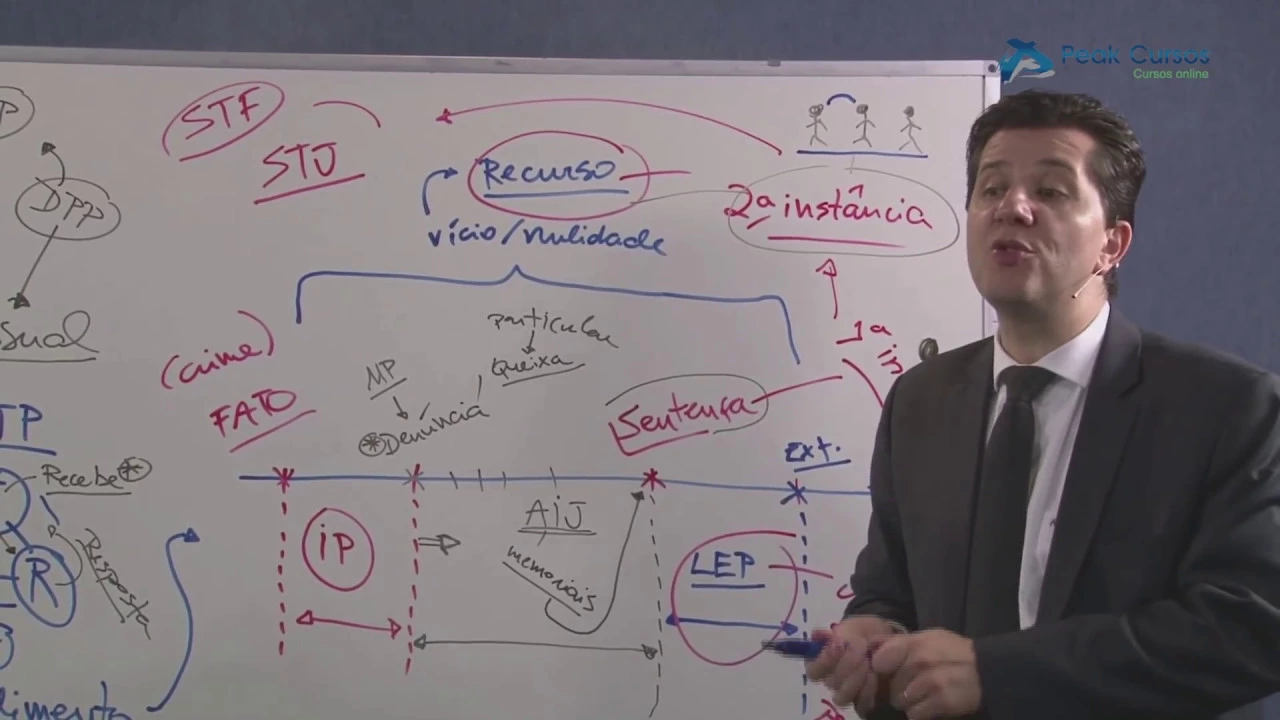 Peak Cursos
Cursos online
STF
STJ
Recurso
vício/nulidade
2ª instância
1ª
DPP
(crime)
FATO
MP
Denúncia
particular
Queixa
Sentença
Ext.
TP
Recebe
R
Resposta
IP
AIJ
memoriais
LEP